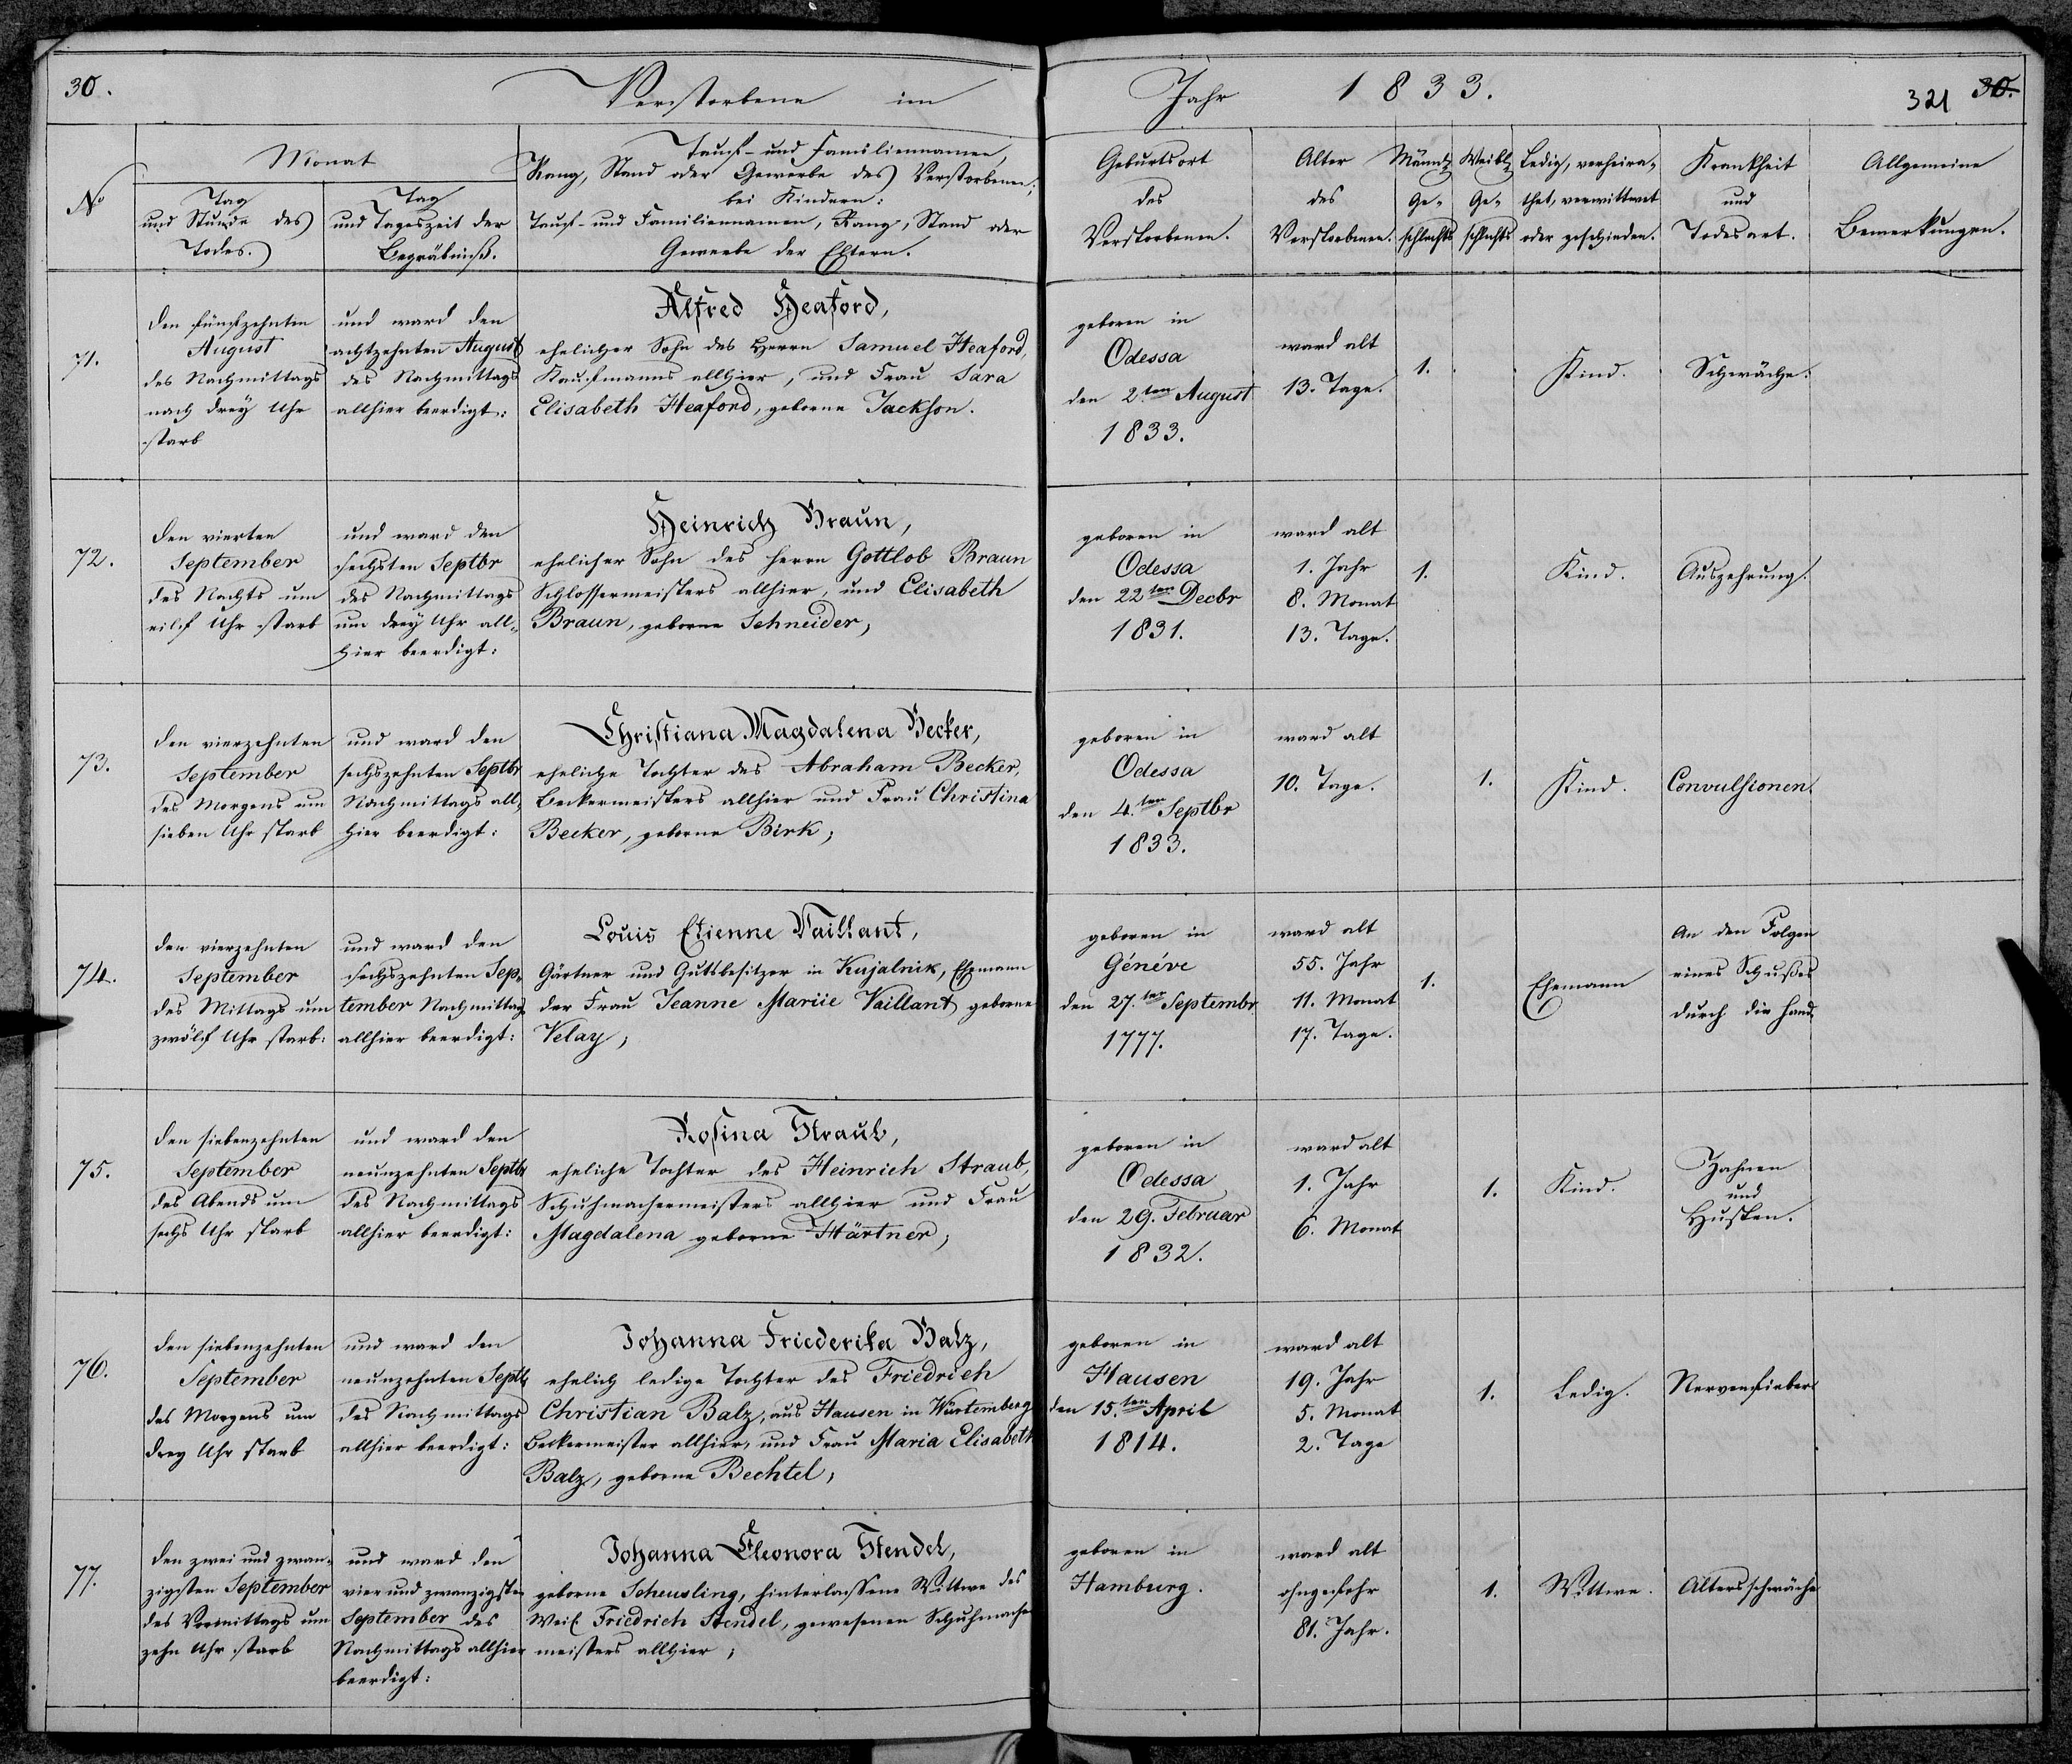 30.
Verstorbene im Jahr 1833.
321 30.
No
Monat
Tag
und Stunde des
Todes.
Tag
und Tageszeit der
Begräbniß.
Tauf- und Familiennamen,
Rang, Stand oder Gewerbe des Verstorbenen;
bei Kindern:
Tauf- und Familiennamen, Rang, Stand oder
Gewerbe der Eltern.
Geburtsort
des
Verstorbenen.
Alter
des
Verstorbenen.
Männl.
Ge-
schlechts
Weibl.
Ge-
schlechts
Ledig, verheira-
thet, verwittwet
oder geschieden.
Krankheit
und
Todesart.
Allgemeine
Bemerkungen.
71.
den fünfzehnten
August
des Nachmittags
nach drey Uhr
starb
und ward den
achtzehnten August
des Nachmittags
allhier beerdigt:
Alfred Heaford,
ehelicher Sohn des Herrn Samuel Heaford,
Kaufmanns allhier, und Frau Sara
Elisabeth Heaford, geborne Jackson.
geboren in
Odessa
den 2.ten August
1833.
ward alt
13. Tage.
1.
Kind.
Schwäche.
72.
den vierten
September
des Nachts um
eilf Uhr starb
und ward den
sechsten Septbr
des Nachmittags
um drey Uhr all-
hier beerdigt:
Heinrich Braun,
ehelicher Sohn des Herrn Gottlob Braun
Schlossermeisters allhier, und Elisabeth
Braun, geborne Schneider,
geboren in
Odessa
den 22ten Decbr
1831.
ward alt
1. Jahr
8. Monat
13. Tage.
1.
Kind.
Auszehrung.
73.
den vierzehnten
September
des Morgens um
sieben Uhr starb
und ward den
sechszehnten Septbr
Nachmittags all-
hier beerdigt:
Christiana Magdalena Becker,
eheliche Tochter des Abraham Becker,
Beckermeisters allhier und Frau Christina
Becker, geborne Birk;
geboren in
Odessa
den 4.ten Septbr
1833.
ward alt
10. Tage.
1.
Kind.
Convulsionen.
74.
den vierzehnten
September
des Mittags um
zwölf Uhr starb:
und ward den
sechszehnten Sep-
tember Nachmittag
allhier beerdigt:
Louis Etienne Vaillant,
Gärtner und Gutsbesitzer in Kujalnik, Ehemann
der Frau Jeanne Mariie Vaillant geborne
Velay;
geboren in
Généve
den 27.ten Septembr
1777.
ward alt
55. Jahr
11. Monat
17. Tage.
1.
Ehemann
An den Folgen
eines Schußes
durch die Hand.
75.
den siebenzehnten
September
des Abends um
sechs Uhr starb
und ward den
neunzehnten Septbr
des Nachmittags
allhier beerdigt:
Rosina Straub,
eheliche Tochter des Heinrich Straub,
Schuhmachermeisters allhier und Frau
Magdalena geborne Härtner;
geboren in
Odessa
den 29. Februar
1832.
ward alt
1. Jahr
6. Monat
1.
Kind.
Zahnen
und
Husten.
76.
den siebenzehnten
September
des Morgens um
drey Uhr starb
und ward den
neunzehnten Septb
des Nachmittags
allhier beerdigt:
Johanna Friederika Balz,
ehelich ledige Tochter des Friedrich
Christian Balz, aus Hausen in Würtemberg
Beckermeister allhier, und Frau Maria Elisabeth
Balz, geborne Bechtel;
geboren in
Hausen
den 15.ten April
1814.
ward alt
19. Jahr
5. Monat
2. Tage
1.
Ledig.
Nervenfieber
77.
den zwei und zwan-
zigsten September
des Vormittags um
zehn Uhr starb
und ward den
vier und zwanzigsten
September des
Nachmittags allhier
beerdigt:
Johanna Eleonora Stendel,
geborne Scheusling, hinterlassene Wittwe des
Weil. Friedrich Stendel, gewesenen Schuhmacher
meisters allhier;
geboren in
Hamburg.
ward alt
ohngefehr
81. Jahr.
1.
Wittwe.
Altersschwäche